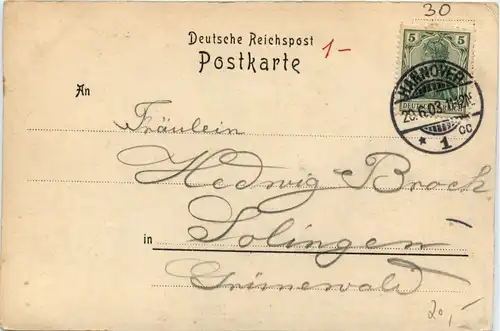 30
Deutsche Reichspost
1-
Postkarte
5 5
HANNOVER
20.6.03.
* 1 cc
An
Fräulein
Hedwig Brock
in Solingen
Grünewald
20,-